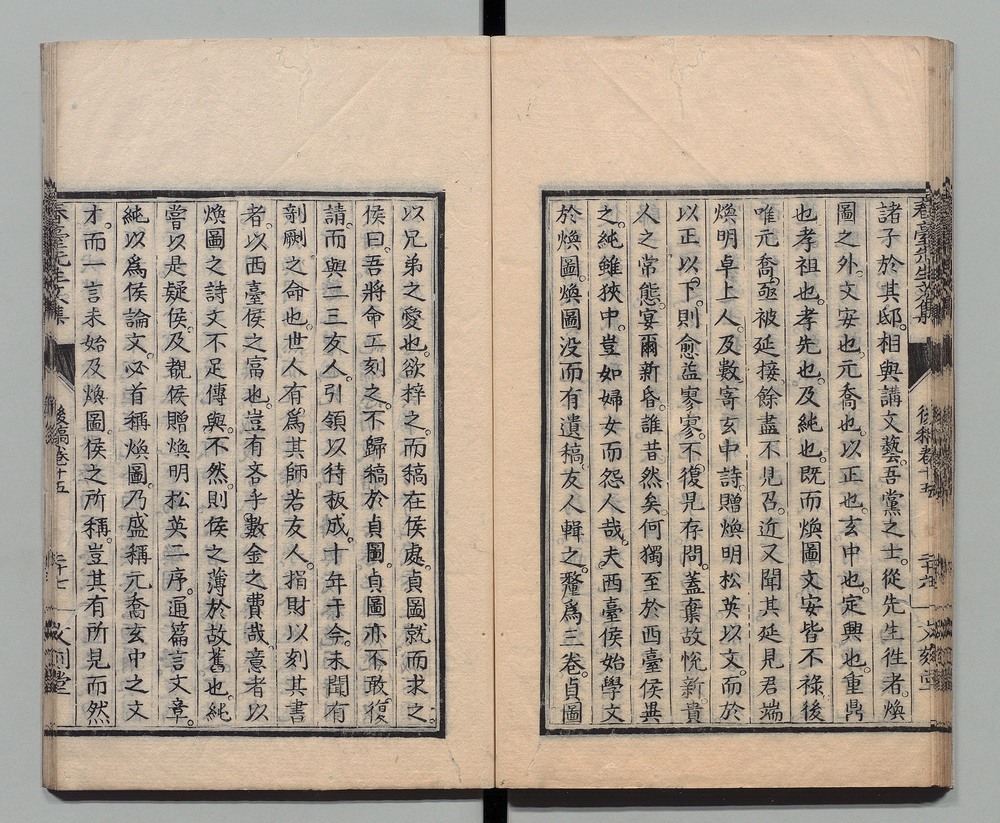 諸子於其邸相與講文藝。吾黨之士。從先生往者。煥
圖之外。文安也。元喬也。以正也。玄中也。定興也。重鼎
也。孝祖也。孝先也。及純也。既而煥圖文安皆不祿後
唯元喬亟被延接。餘盡不見召。近又聞其延見君端
煥明卓上人。及數寄玄中詩。贈煥明松英以文。而於
以正以下。則愈益寥寥。不復見存問。蓋棄故悅新。貴
人之常態。宴爾新昏。誰昔然矣。何獨至於西臺侯異
之。純雖狹中。豈如婦女而怨人哉。夫西臺侯始學文
於煥圖。煥圖没而有遺稿。友人輯之。釐爲三卷。貞圖
以兄弟之愛也。欲梓之。而稿在侯處。貞圖就而求之。
侯曰。吾將命工刻之。不歸稿於貞圖。貞圖亦不敢復
請。而與二三友人。引領以待板成。十年于今。未聞有
剞劂之命也。世人有爲其師若友人。捐財以刻其書
者。以西臺侯之富也。豈有吝乎數金之費哉。意者以
煥圖之詩文不足傳與。不然。則侯之薄於故舊也。純
嘗以是疑侯。及觀侯贈煥明松英二序。通篇言文章。
純以爲侯論文。必首稱煥圖。乃盛稱元喬玄中之文
才。而一言未始及煥圖。侯之所稱。豈其有所見而然
春臺先生文集
後稿卷十五
二十六
春臺先生文集
後稿卷十五
二十七